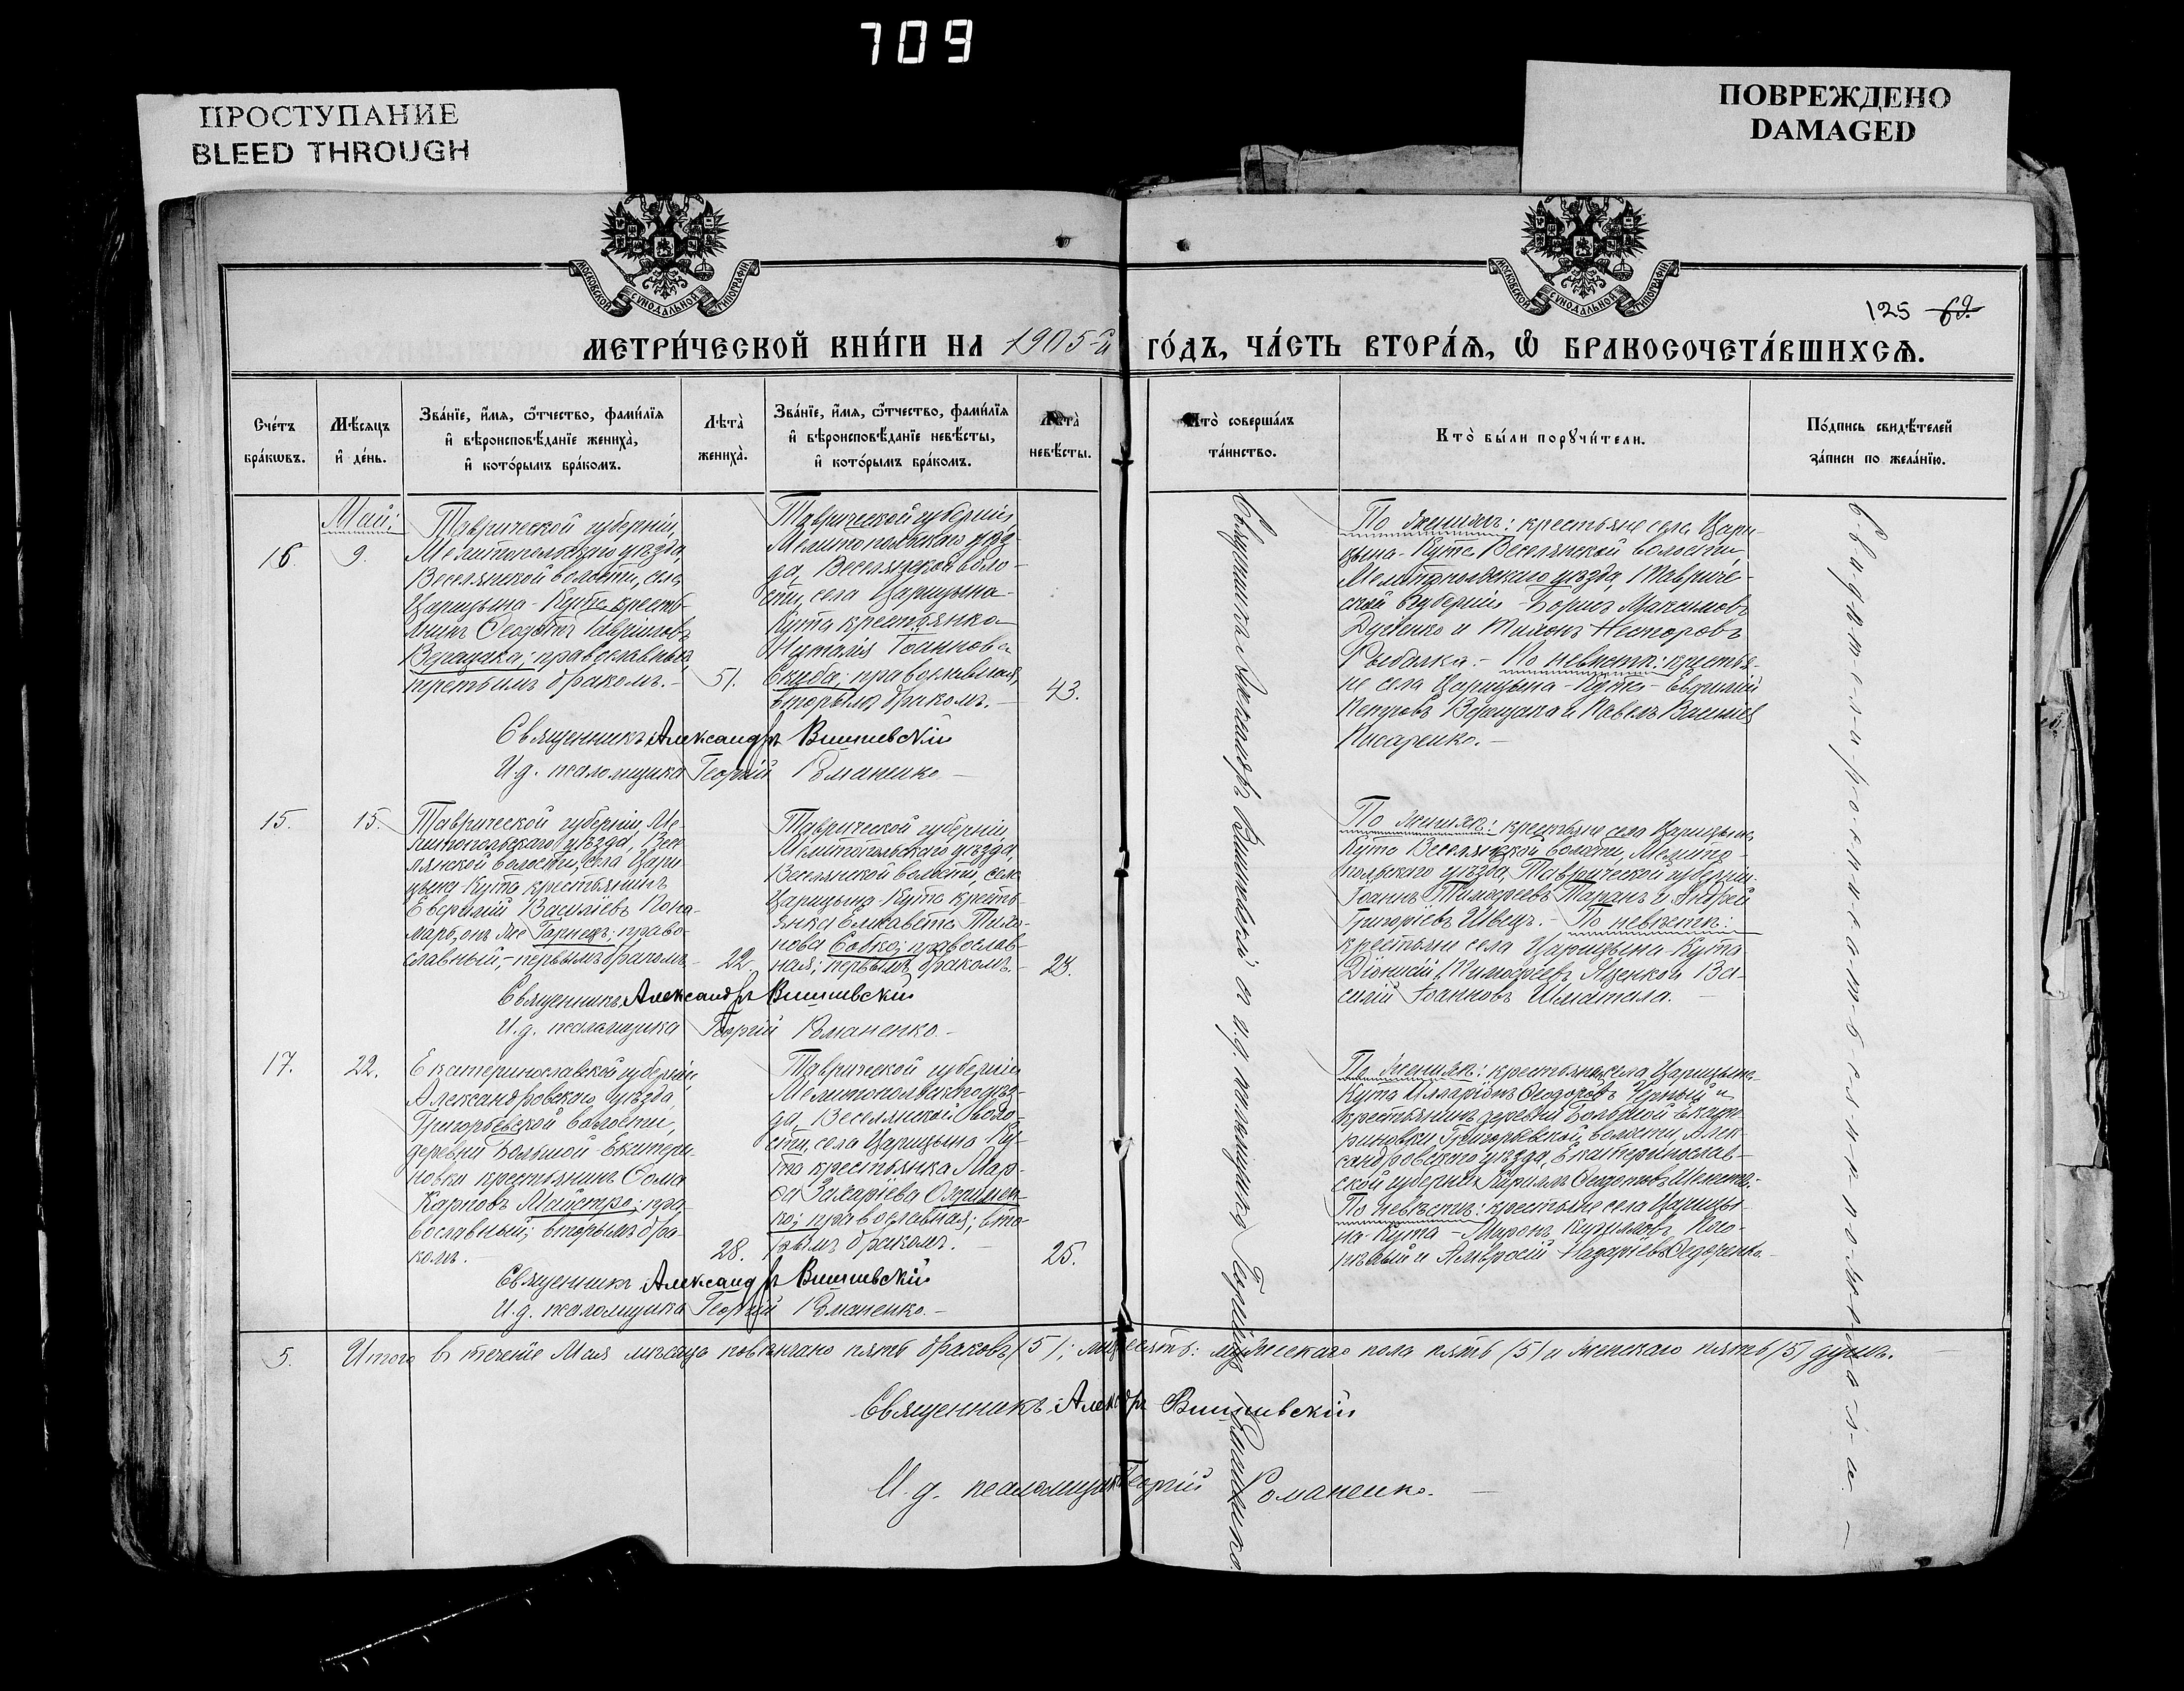 709
ПРОСТУПАНИЕ
BLEED THROUGH
ПОВРЕЖДЕНО
DAMAGED
МОСКОВСКОЙ СѴНОДАЛЬНОЙ ТИПОГРАФІИ
МОСКОВСКОЙ СѴНОДАЛЬНОЙ ТИПОГРАФІИ
125 69.
МЕТРИ́ЧЕСКОЙ КНИ́ГИ НА 1905-й ГО́ДЪ, ЧА́СТЬ ВТОРА́Ѧ, Ѽ БРАКОСОЧЕТА́ВШИХСѦ.
Сче́тъ
бра́кѡвъ.
Мѣ́сяцъ
и҆ де́нь.
Зва́нїе, и҆́мѧ, ѻ҆́тчество, фами́лїѧ
и҆ вѣроисповѣ́данїе жениха̀,
и҆ кото́рымъ бра́комъ.
Лѣта̀
жениха̀.
Зва́нїе, и҆́мѧ, ѻ҆́тчество, фами́лїѧ
и҆ вѣроисповѣ́данїе невѣ́сты,
и҆ кото́рымъ бра́комъ.
Лѣта̀
невѣ́сты.
Кто̀ соверша́лъ
та́инство.
Кто̀ бы́ли порꙋчи́тели.
По́дпись свидѣ́телей
за́писи по жела́нїю.
Май:
16.
9.
Таврической губерніи,
Мелитопольскаго уѣзда,
Веселянской волости, села
Царицына-Кута кресть-
янинъ Ѳеодотъ Гавріиловъ
Верещака; православный,
третьимъ бракомъ.-
51.
Таврической губерніи,
Мелитопольскаго уѣз-
да, Веселянской воло-
сти, села Царицына-
Кута крестьянка
Наталія Іоаннова
Скиба; православная,
вторымъ бракомъ.-
43.
По женихѣ: крестьяне села Цари-
цына-Кута Веселянской волости,
Мелитопольскаго уѣзда, Тавриче-
ской губерніи - Борисъ Максимовъ
и Тихонъ Несторовъ
Рыбалка.- По невѣстѣ: крестья-
не села Царицына-Кута - Евѳимій
Петровъ Верещака и Павелъ Васильевъ
Писаренко.-
Священникъ Александръ Вишневскій
И.д. псаломщика Георгій Романенко-
15.
15.
Таврической губерніи, Ме-
литопольскаго уѣзда, Весе-
лянской волости, села Цари-
цына-Кута крестьянинъ
Евѳимій Васильевъ Пона-
марь, онъ же Гарнецъ; право-
славный,- первымъ бракомъ
22.
Таврической губерніи
Мелитопольскаго уѣзда,
Веселянской волости, села
Царицына-Кута кресть-
янка Елисавета Тихо-
нова Собко; православ-
ная; первымъ бракомъ.-
23.
По женихѣ: крестьяне села Царицына
Кута Веселянской волости, Мелито-
польскаго уѣзда, Таврической губерніи-
Іоаннъ Тимоѳеевъ Таранъ и Андрей
Григоріевъ Швецъ.- По невѣстѣ:
крестьяне села Царицына-Кута
Діонисій Тимоѳеевъ Яценко и Ва-
силій Іоанновъ Шматала.-
Священникъ Александръ Вишневскій
И.д. псаломщика Георгій Романенко.-
17.
22.
Екатеринославской губерніи
Александровскаго уѣзда,
Григорьевской волости,
деревни Большой Екатери-
новки крестьянинъ Ѳома
Карповъ Майстро; пра-
вославный; вторымъ бра-
комъ.-
28.
Таврической губерніи
Мелитопольскаго уѣз-
да, Веселянской воло-
сти, села Царицына-Ку-
та крестьянка Мар-
ѳа Захаріева
православная; вто-
рымъ бракомъ.-
25.
По женихѣ: крестьянинъ села Царицына-
Кута Илларіонъ Ѳеодоровъ Черный и
крестьянинъ деревни Большой Екате-
риновки Григорьевской волости, Алек-
сандровскаго уѣзда, Екатеринослав-
ской губерніи Кириллъ
По невѣстѣ: крестьяне села Царицы-
на-Кута - Миронъ
и Амвросій Назаріевъ
Священникъ Александръ Вишневскій
И.д. псаломщика Георгій Романенко.-
Священникъ Александръ Вишневскій и и.д. псаломщика Георгій Романенко.
Свидѣтелирокписатьсянепожелали.-
5. Итого въ теченіе Мая мѣсяца повѣнчано пять браковъ (5); мужескаго пола пять (5) и женскаго пять (5) душъ.-
Священникъ Александръ Вишневскій
И.д. псаломщика Георгій Романенко.-